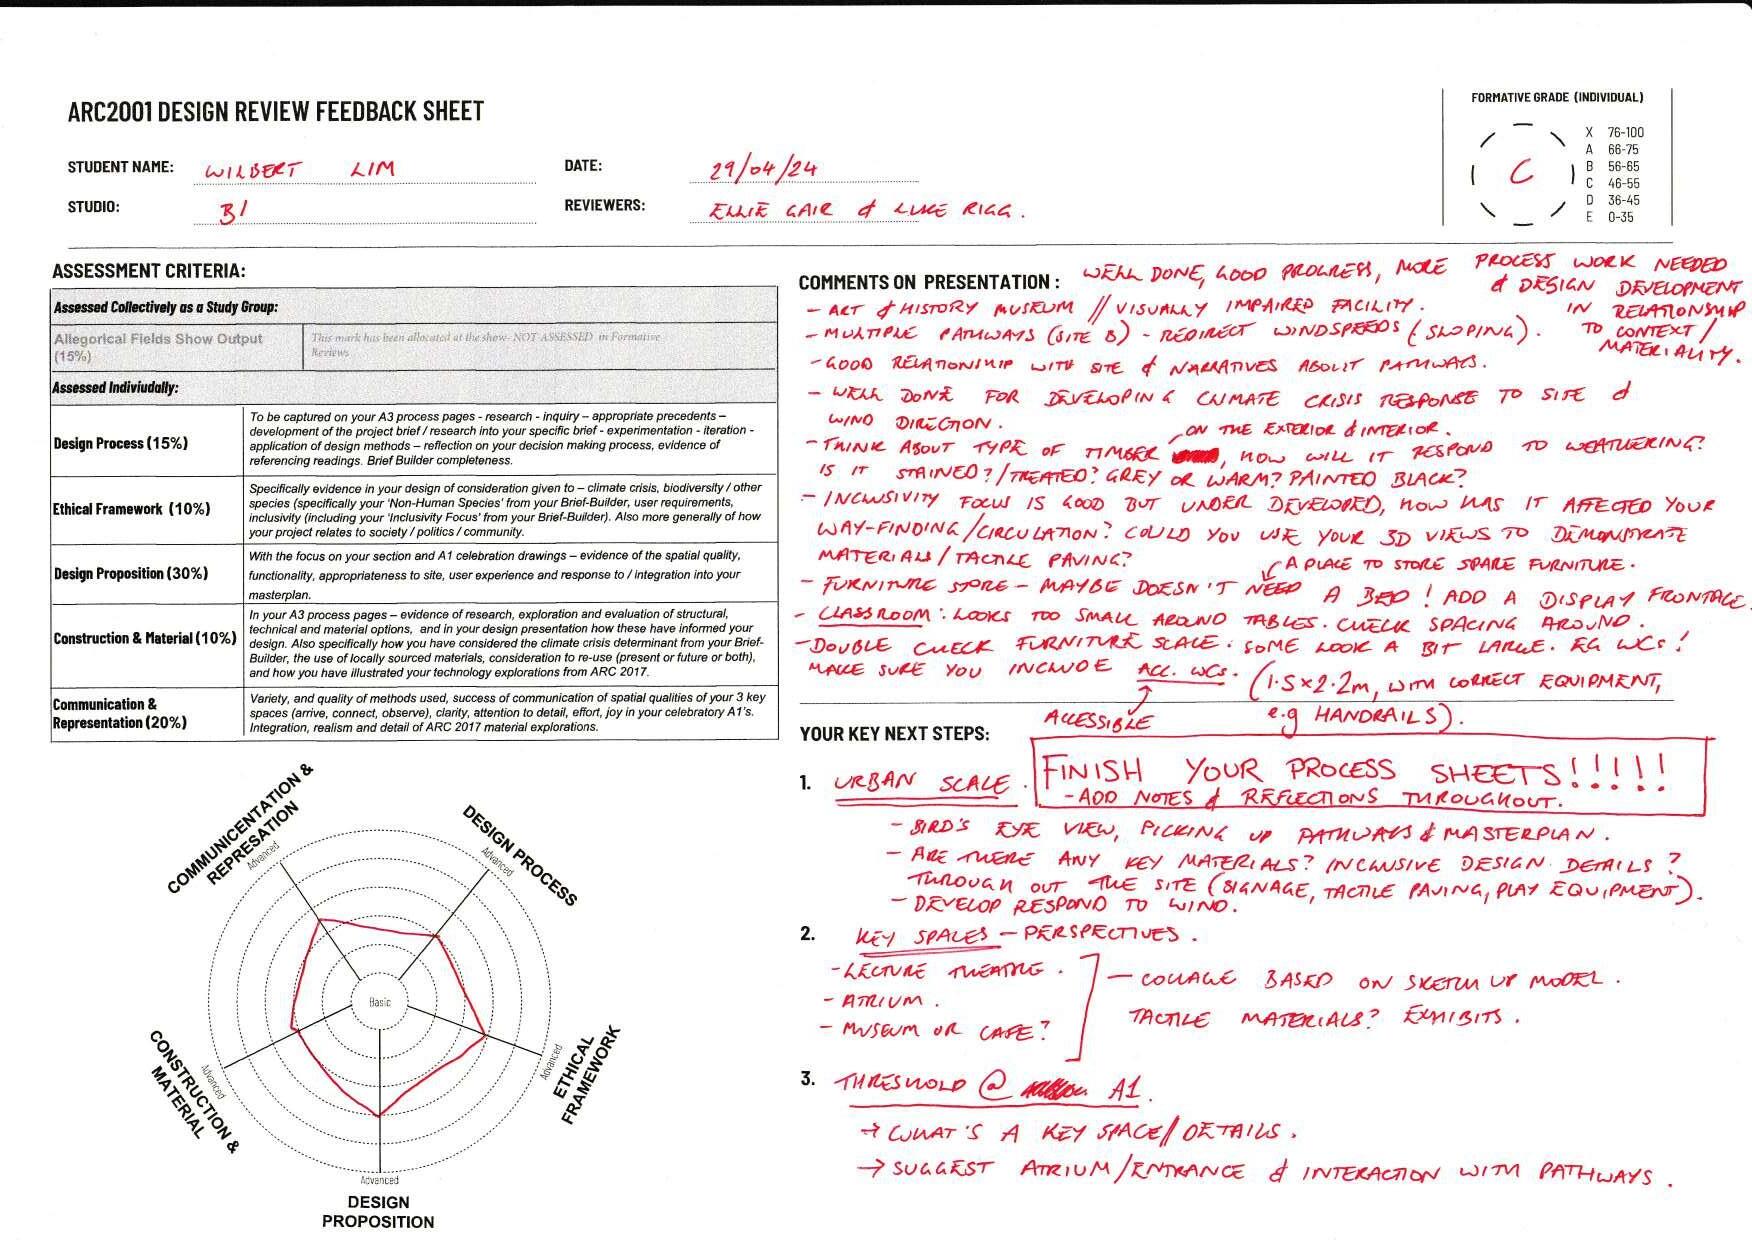 ARC2001 DESIGN REVIEW FEEDBACK SHEET
STUDENT NAME: WILBERT LIM
DATE: 29/04/24
STUDIO: B1
REVIEWERS: ELLIE GAIR & LUKE RIGG.
FORMATIVE GRADE (INDIVIDUAL)
C
X 76-100
A 66-75
B 56-65
C 46-55
D 36-45
E 0-35
ASSESSMENT CRITERIA:
Assessed Collectively as a Study Group:
Allegorical Fields Show Output
(15%)
This mark has been allocated at the show- NOT ASSESSED in Formative
Reviews
Assessed Indiviudally:
Design Process (15%)
To be captured on your A3 process pages - research - inquiry – appropriate precedents –
development of the project brief / research into your specific brief - experimentation - iteration -
application of design methods – reflection on your decision making process, evidence of
referencing readings. Brief Builder completeness.
Ethical Framework (10%)
Specifically evidence in your design of consideration given to – climate crisis, biodiversity / other
species (specifically your 'Non-Human Species' from your Brief-Builder, user requirements,
inclusivity (including your 'Inclusivity Focus' from your Brief-Builder). Also more generally of how
your project relates to society / politics / community.
Design Proposition (30%)
With the focus on your section and A1 celebration drawings – evidence of the spatial quality,
functionality, appropriateness to site, user experience and response to / integration into your
masterplan.
Construction & Material (10%)
In your A3 process pages – evidence of research, exploration and evaluation of structural,
technical and material options, and in your design presentation how these have informed your
design. Also specifically how you have considered the climate crisis determinant from your Brief-
Builder, the use of locally sourced materials, consideration to re-use (present or future or both),
and how you have illustrated your technology explorations from ARC 2017.
Communication &
Representation (20%)
Variety, and quality of methods used, success of communication of spatial qualities of your 3 key
spaces (arrive, connect, observe), clarity, attention to detail, effort, joy in your celebratory A1's.
Integration, realism and detail of ARC 2017 material explorations.
COMMUNICENTATION &
REPRESATION
Advanced
DESIGN PROCESS
Advanced
Basic
ETHICAL
FRAMEWORK
Advanced
CONSTRUCTION &
MATERIAL
Advanced
Advanced
DESIGN
PROPOSITION
COMMENTS ON PRESENTATION : WELL DONE, GOOD PROGRESS, MORE PROCESS WORK NEEDED
& DESIGN DEVELOPMENT
IN RELATIONSHIP
TO CONTEXT /
MATERIALITY.
- ART & HISTORY MUSEUM // VISUALLY IMPAIRED FACILITY.
- MULTIPLE PATHWAYS (SITE B) - REDIRECT WINDSPEEDS (SLOPING).
- GOOD RELATIONSHIP WITH SITE & NARRATIVES ABOUT PATHWAYS.
- WELL DONE FOR DEVELOPING CLIMATE CRISIS RESPONSE TO SITE &
WIND DIRECTION.
ON THE EXTERIOR & INTERIOR.
- THINK ABOUT TYPE OF TIMBER, HOW WILL IT RESPOND TO WEATHERING?
IS IT STAINED?/TREATED? GREY OR WARM? PAINTED BLACK?
- INCLUSIVITY FOCUS IS GOOD BUT UNDER DEVELOPED, HOW HAS IT AFFECTED YOUR
WAY-FINDING/CIRCULATION? COULD YOU USE YOUR 3D VIEWS TO DEMONSTRATE
MATERIALS/TACTILE PAVING?
A PLACE TO STORE SPARE FURNITURE.
- FURNITURE STORE - MAYBE DOESN'T NEED A BED! ADD A DISPLAY FRONTAGE.
- CLASSROOM: LOOKS TOO SMALL AROUND TABLES. CHECK SPACING AROUND.
- DOUBLE CHECK FURNITURE SCALE. SOME LOOK A BIT LARGE. EG WCs!
MAKE SURE YOU INCLUDE ACC. WCs. (1.5×2.2m, WITH CORRECT EQUIPMENT,
ACCESSIBLE
e.g HANDRAILS).
YOUR KEY NEXT STEPS:
FINISH YOUR PROCESS SHEETS!!!!!
- ADD NOTES & REFLECTIONS THROUGHOUT.
1. URBAN SCALE.
- BIRD'S EYE VIEW, PICKING UP PATHWAYS & MASTERPLAN.
- ARE THERE ANY KEY MATERIALS? INCLUSIVE DESIGN DETAILS?
THROUGH OUT THE SITE (SIGNAGE, TACTILE PAVING, PLAY EQUIPMENT).
- DEVELOP RESPOND TO WIND.
2. KEY SPACES - PERSPECTIVES.
- LECTURE THEATRE.
- ATRIUM.
- MUSEUM OR CAFE?
- COLLAGE BASED ON SKETCH UP MODEL.
TACTILE MATERIALS? EXHIBITS.
3. THRESHOLD @ A1.
→ WHAT'S A KEY SPACE//DETAILS.
→ SUGGEST ATRIUM/ENTRANCE & INTERACTION WITH PATHWAYS.